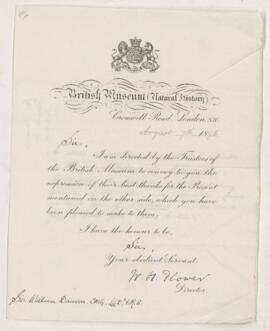 British Museum (Natural History)
Cromwell Road, London, S.W.
August 7th 1896
Sir,
I am directed by the Trustees of
the British Museum to convey to you the
expression of their best thanks for the Present
mentioned on the other side, which you have
been pleased to make to them.
I have the honour to be,
Sir,
Your obedient Servant,
W. H. Flower
Director.
Sir William Dawson, CMG, LL.D, F.R.S.